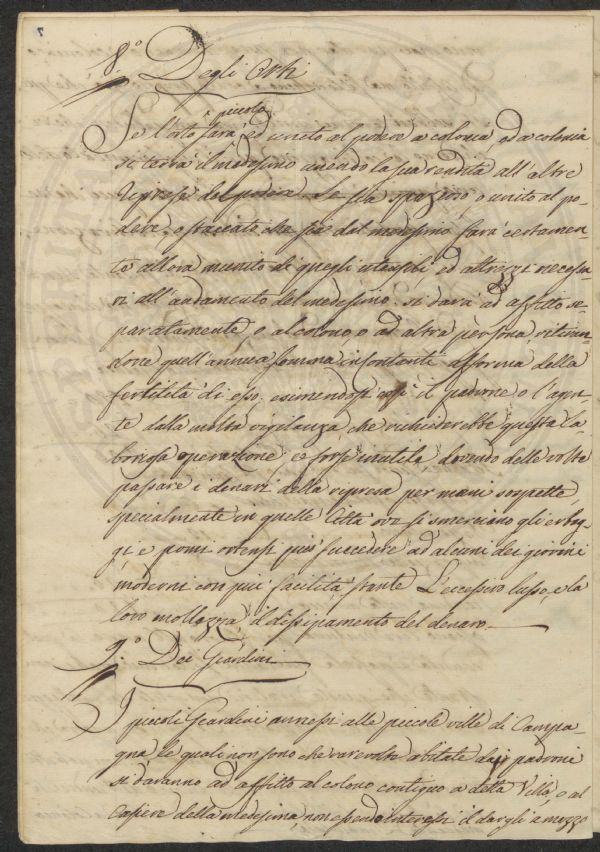 7
8.° Degli Orti
Se l'orto sarà piccolo ed unito al podere a colonia ed a colonia
si terrà il medesimo unendo la sua rendita all'altre
represe del podere. Se sia spazioso o unito al po-
dere, o staccato che sia dal medesimo sarà certamen-
te allora munito di quegli utensibi ed attrezzi necessa-
ri all'andamento del medesimo: si darà ad affitto se-
paratamente o al colono, o ad altra persona, ritraen-
done quell'annua somma in contanti a forma della
fertilità di esso, esimendosi così il padrone o l'agen-
te dalla molta vigilanza, che richiederebbe questa la-
boriosa operazione e forse inutile, dovendo delle volte
passare i denari della represa per mani sospette,
specialmente in quelle Città ove si smerciano gli erbag-
gi, e pomi ortensi può succedere ad alcuni dei giorni
moderni con più facilità stante L'eccessivo lusso, e la
loro mollezza il dissipamento del denaro.
9.° Dei Giardini
I piccoli Giardini annessi alle piccole ville di Campa-
gna le quali non sono che rare volte abitate dai padroni
si daranno ad affitto al colono contiguo a detta Villa, o al
Casiere della medesima, non essendo interesse il dargli a mezzo